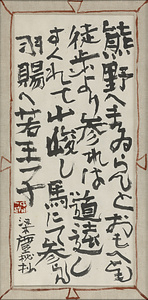 熊野へまゐらんとおもへとも
徒歩より参れは道遠し
すくれて山峻し馬にて参
羽賜へ若王子
梁塵秘抄